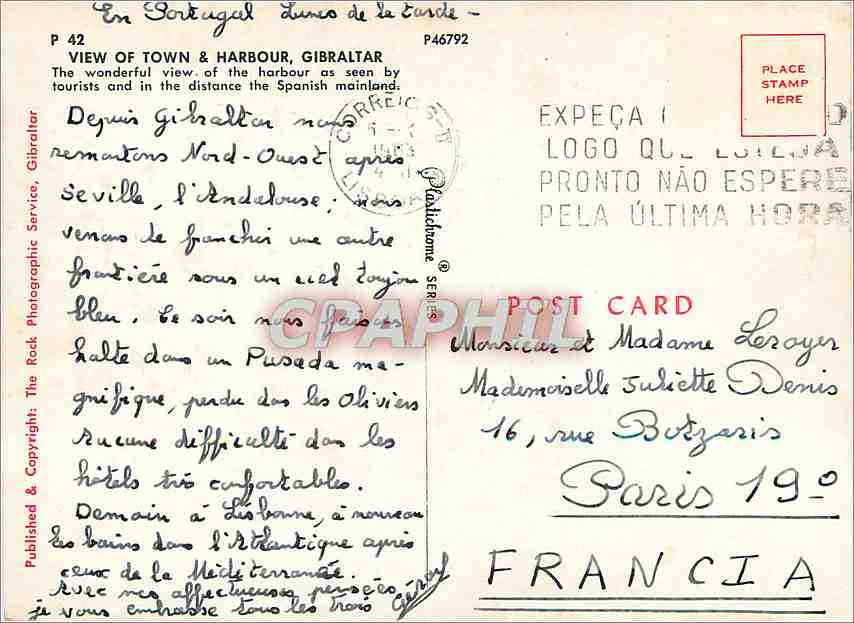 En Portugal Lunes de la tarde -
P 42
P46792
VIEW OF TOWN & HARBOUR, GIBRALTAR
The wonderful view of the harbour as seen by
tourists and in the distance the Spanish mainland.
Depuis Gibraltar nous
remontons Nord-Ouest après
Séville, l'Andalouse; nous
venons de franchir une autre
frontière sous un ciel toujours
bleu. Ce soir nous faisons
halte dans un Pusada ma-
gnifique, perdu dans les Oliviers
Aucune difficulté dans les
hôtels très confortables.
Demain à Lisbonne, à nouveau
les bains dans l'Atlantique après
ceux de la Méditerranée.
Avec mes affectueuses pensées,
je vous embrasse tous les trois
Published & Copyright: The Rock Photographic Service, Gibraltar
Plastichrome ® SERIES
CORREIOS
LISBOA
PLACE
STAMP
HERE
EXPEÇA
LOGO QUE ESTEJA
PRONTO NÃO ESPERE
PELA ÚLTIMA HORA
CPAPHIL
POST CARD
Monsieur et Madame Leroyer
Mademoiselle Juliette Denis
16, rue Botzaris
Paris 19º
FRANCIA